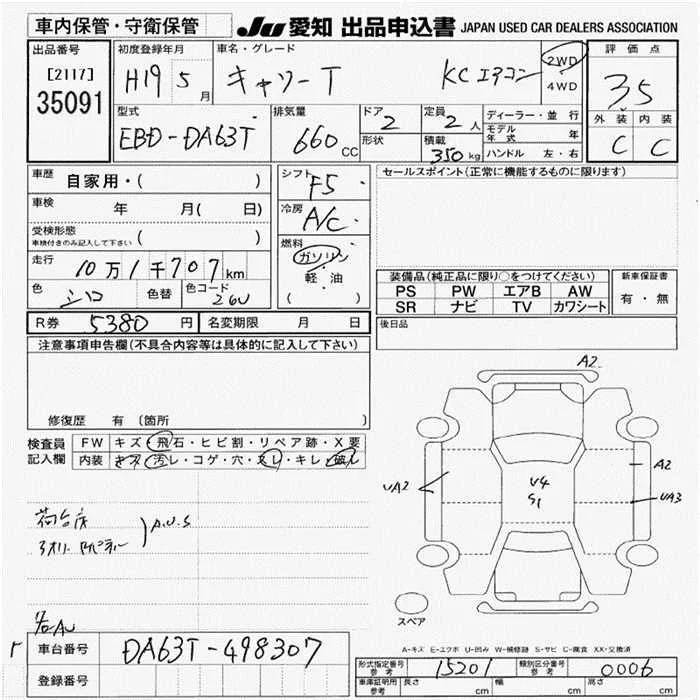 車内保管・守衛保管 JU 愛知 出品申込書 JAPAN USED CAR DEALERS ASSOCIATION
出品番号 初度登録年月 車名・グレード 2WD 評価点
[2117] H19 5月 キャリーT KCエアコン 4WD 3.5
35091 型式 排気量 ドア 定員 ディーラー・並行 外装 内装
EBD-DA63T 660cc 2 2人 モデル年式 年 C C
形状 積載 350kg ハンドル 左・右
車歴 自家用・( ) シフト F5 セールスポイント(正常に機能するものに限ります)
車検 年 月( 日) 冷房 A/C
受検形態 車検付きのみ記入して下さい ( ) 燃料 ガソリン
走行 10万1千707km 軽・油 装備品(純正品に限り○をつけてください) 新車保証書
色 シロ 色替 色コード 26U ( ) PS PW エアB AW 有・無
SR ナビ TV カワシート
R券 5380円 名変期限 月 日 後日品
注意事項申告欄(不具合内容等は具体的に記入して下さい)
修復歴 有(箇所 )
検査員 FW キズ・飛石・ヒビ割・リペア跡・X要
記入欄 内装 キズ・汚レ・コゲ・穴・スレ・キレ・破レ
A2
A2
UA2 U4 UA3
S1
荷台床
アオリ A.U.S
スペア
各AU
A-キズ E-エクボ U-凹み W-補修跡 S-サビ C-腐食 XX-交換済
車台番号 DA63T-498307
登録番号
形式指定番号 参考 15201 類別区分番号 参考 0006
車庫証明用 参考 長さ cm 幅 cm 高さ cm